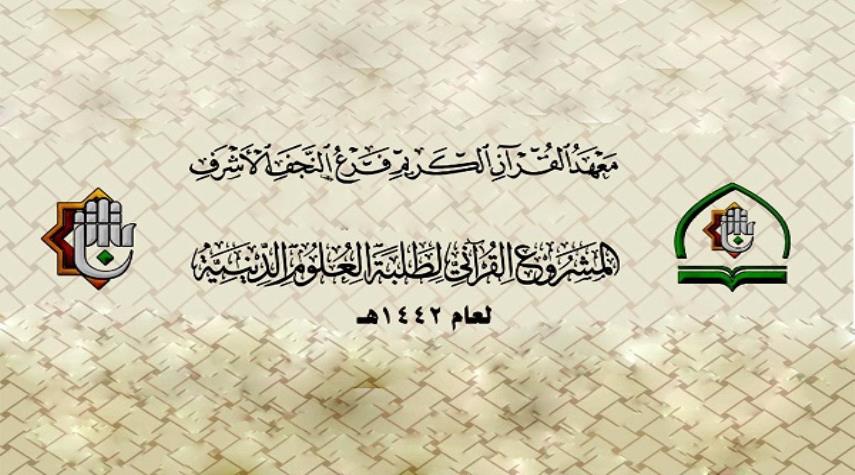 معهد القرآن الكريم فرع النجف الأشرف
المشروع القرآني لطلبة العلوم الدينية
لعام ١٤٤٢هـ